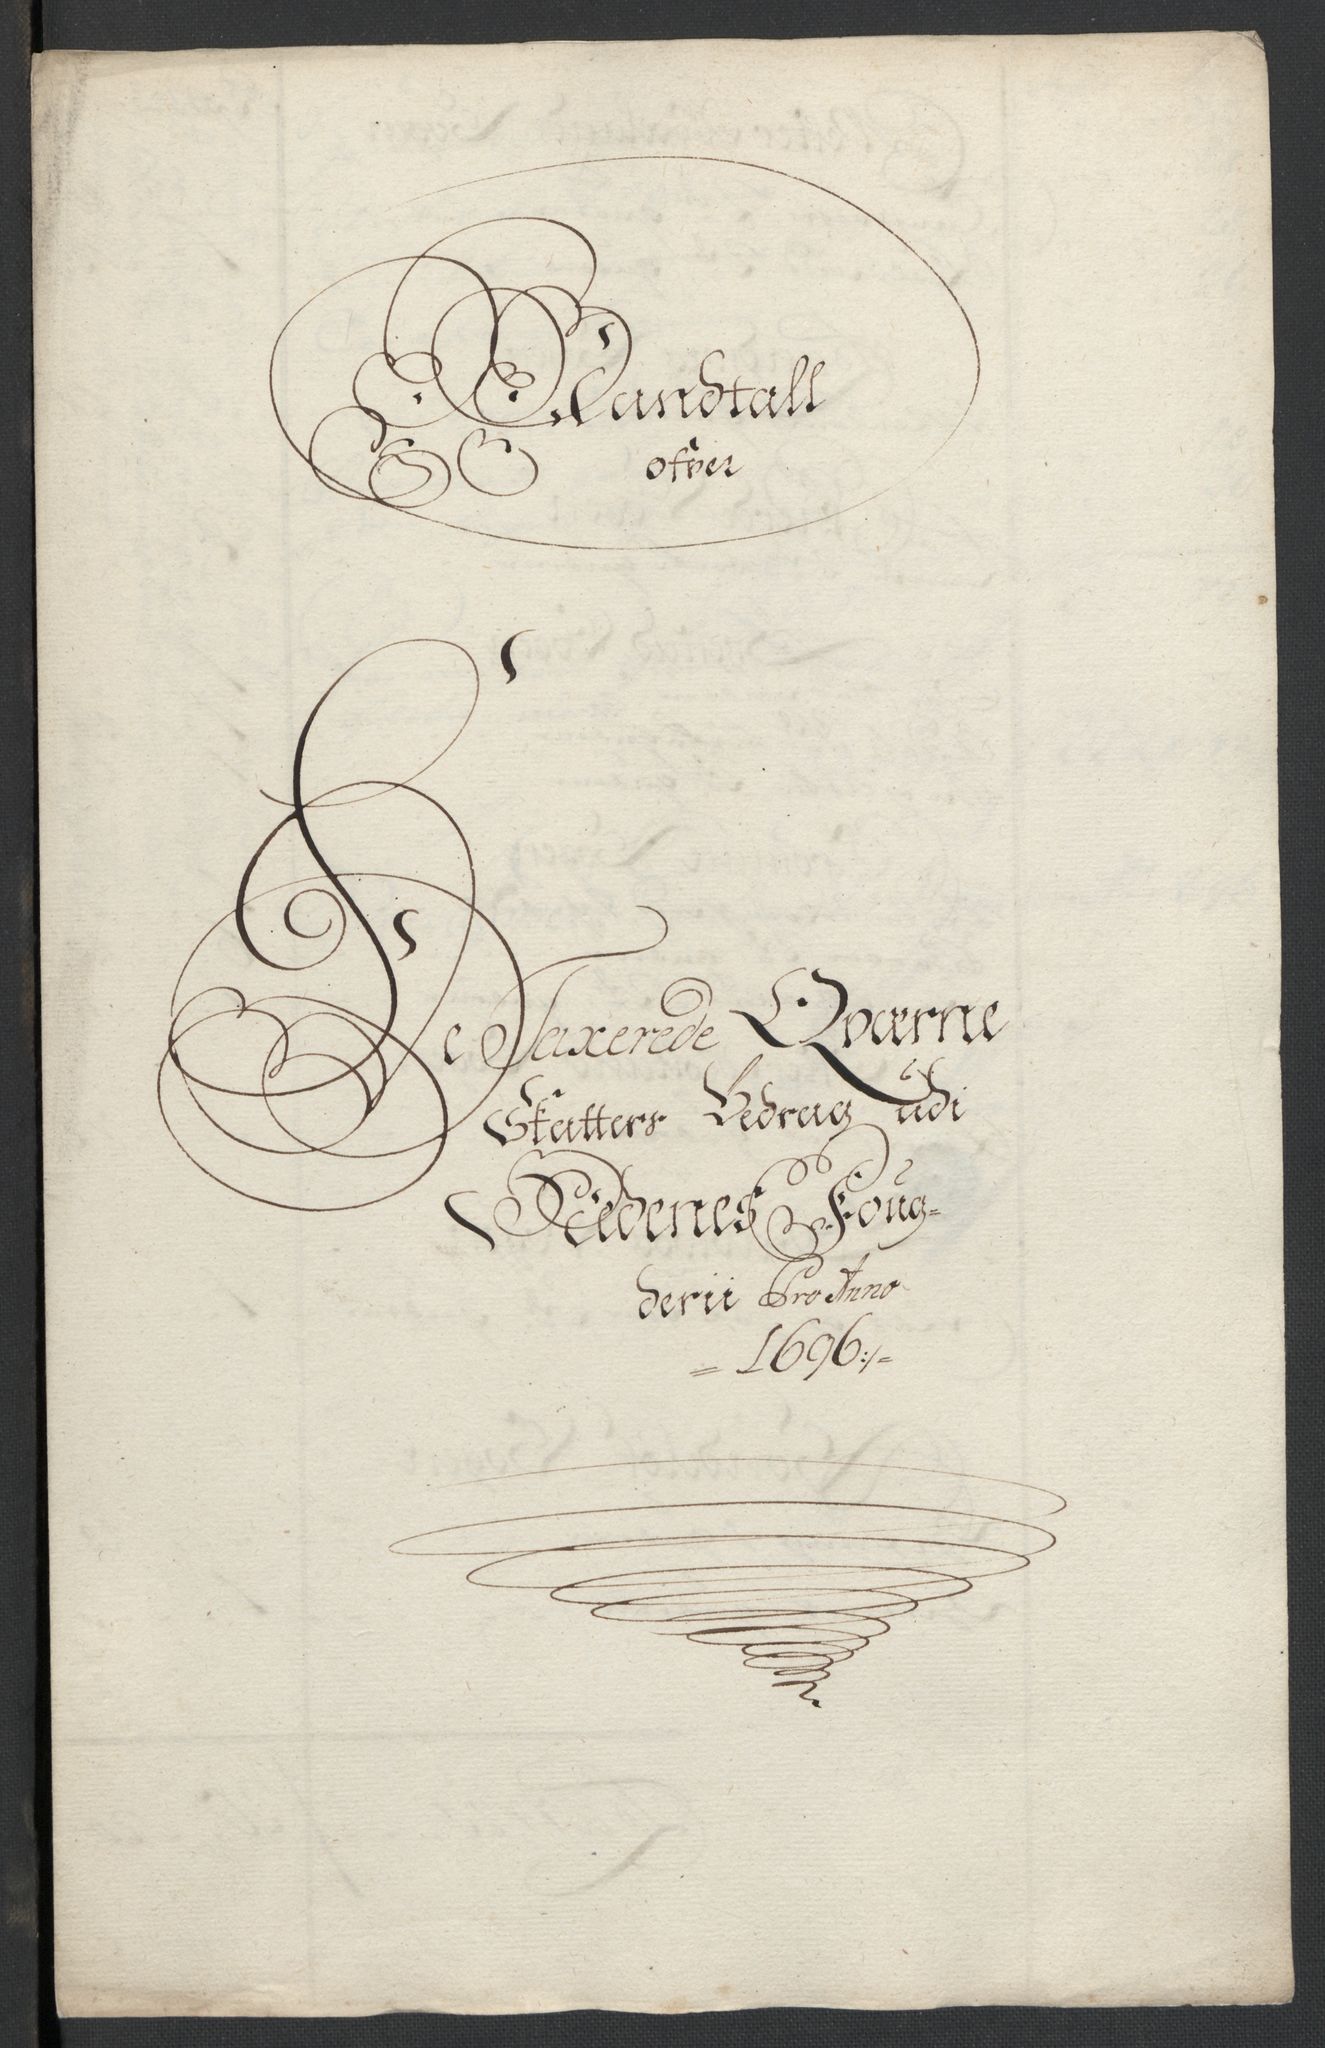 Mandtall
ofver
De Taxerede Qværne
Skatters Bedrag udi
Nedenes Foug=
derii Pro Anno
= 1696:/=